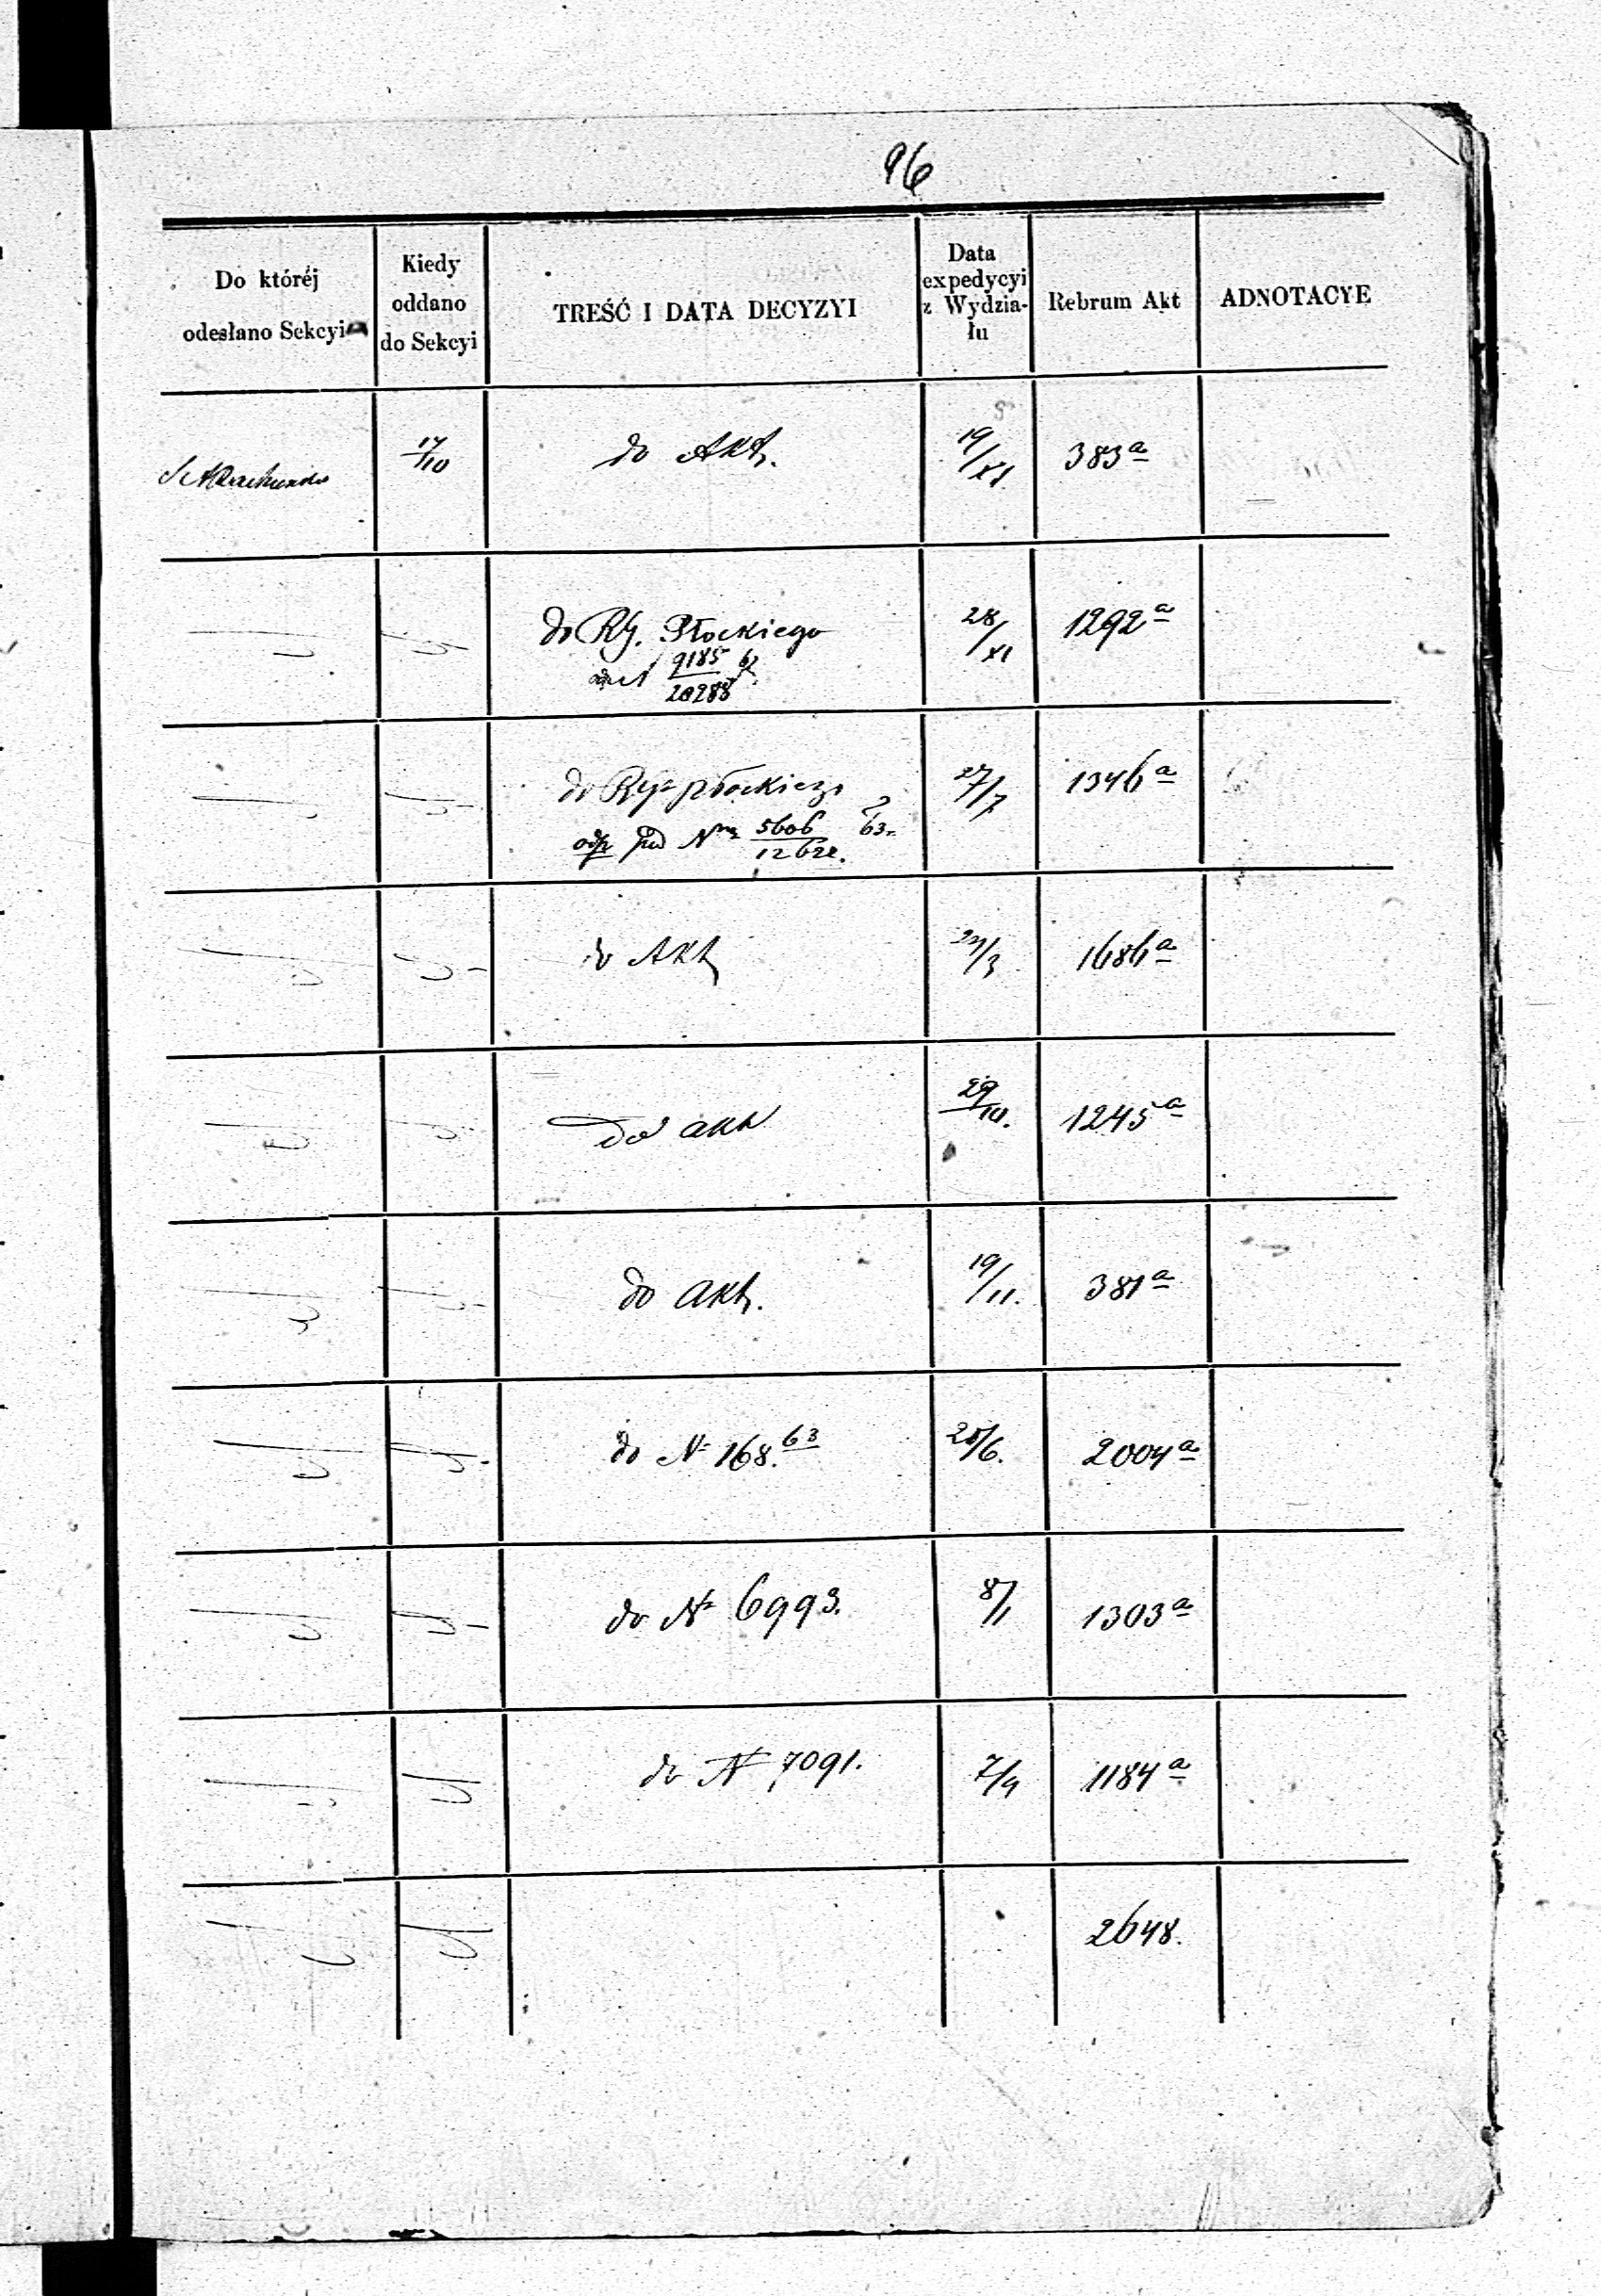 96
Do któréj
odesłano Sekcyi
Kiedy
oddano
do Sekcyi
TREŚĆ I DATA DECYZYI
Data
expedycyi
z Wydzia-
łu
Rebrum Akt
ADNOTACYE
17/10
do Akt.
19/XI
383 a
do RG. Płockiego
9185 / 20288
28/XI
1292 a
do Płockiego
odp pod Nrm 5606 / 12622. 63.
27/7
1346 a
do Akt
/3
1686 a
do akt
29/10.
1245 a
do akt.
19/11.
381 a
do N 168. 63
/6.
2004 a
do N 6993.
8/1
1303 a
do N 7091.
7/9
1184 a
2648.